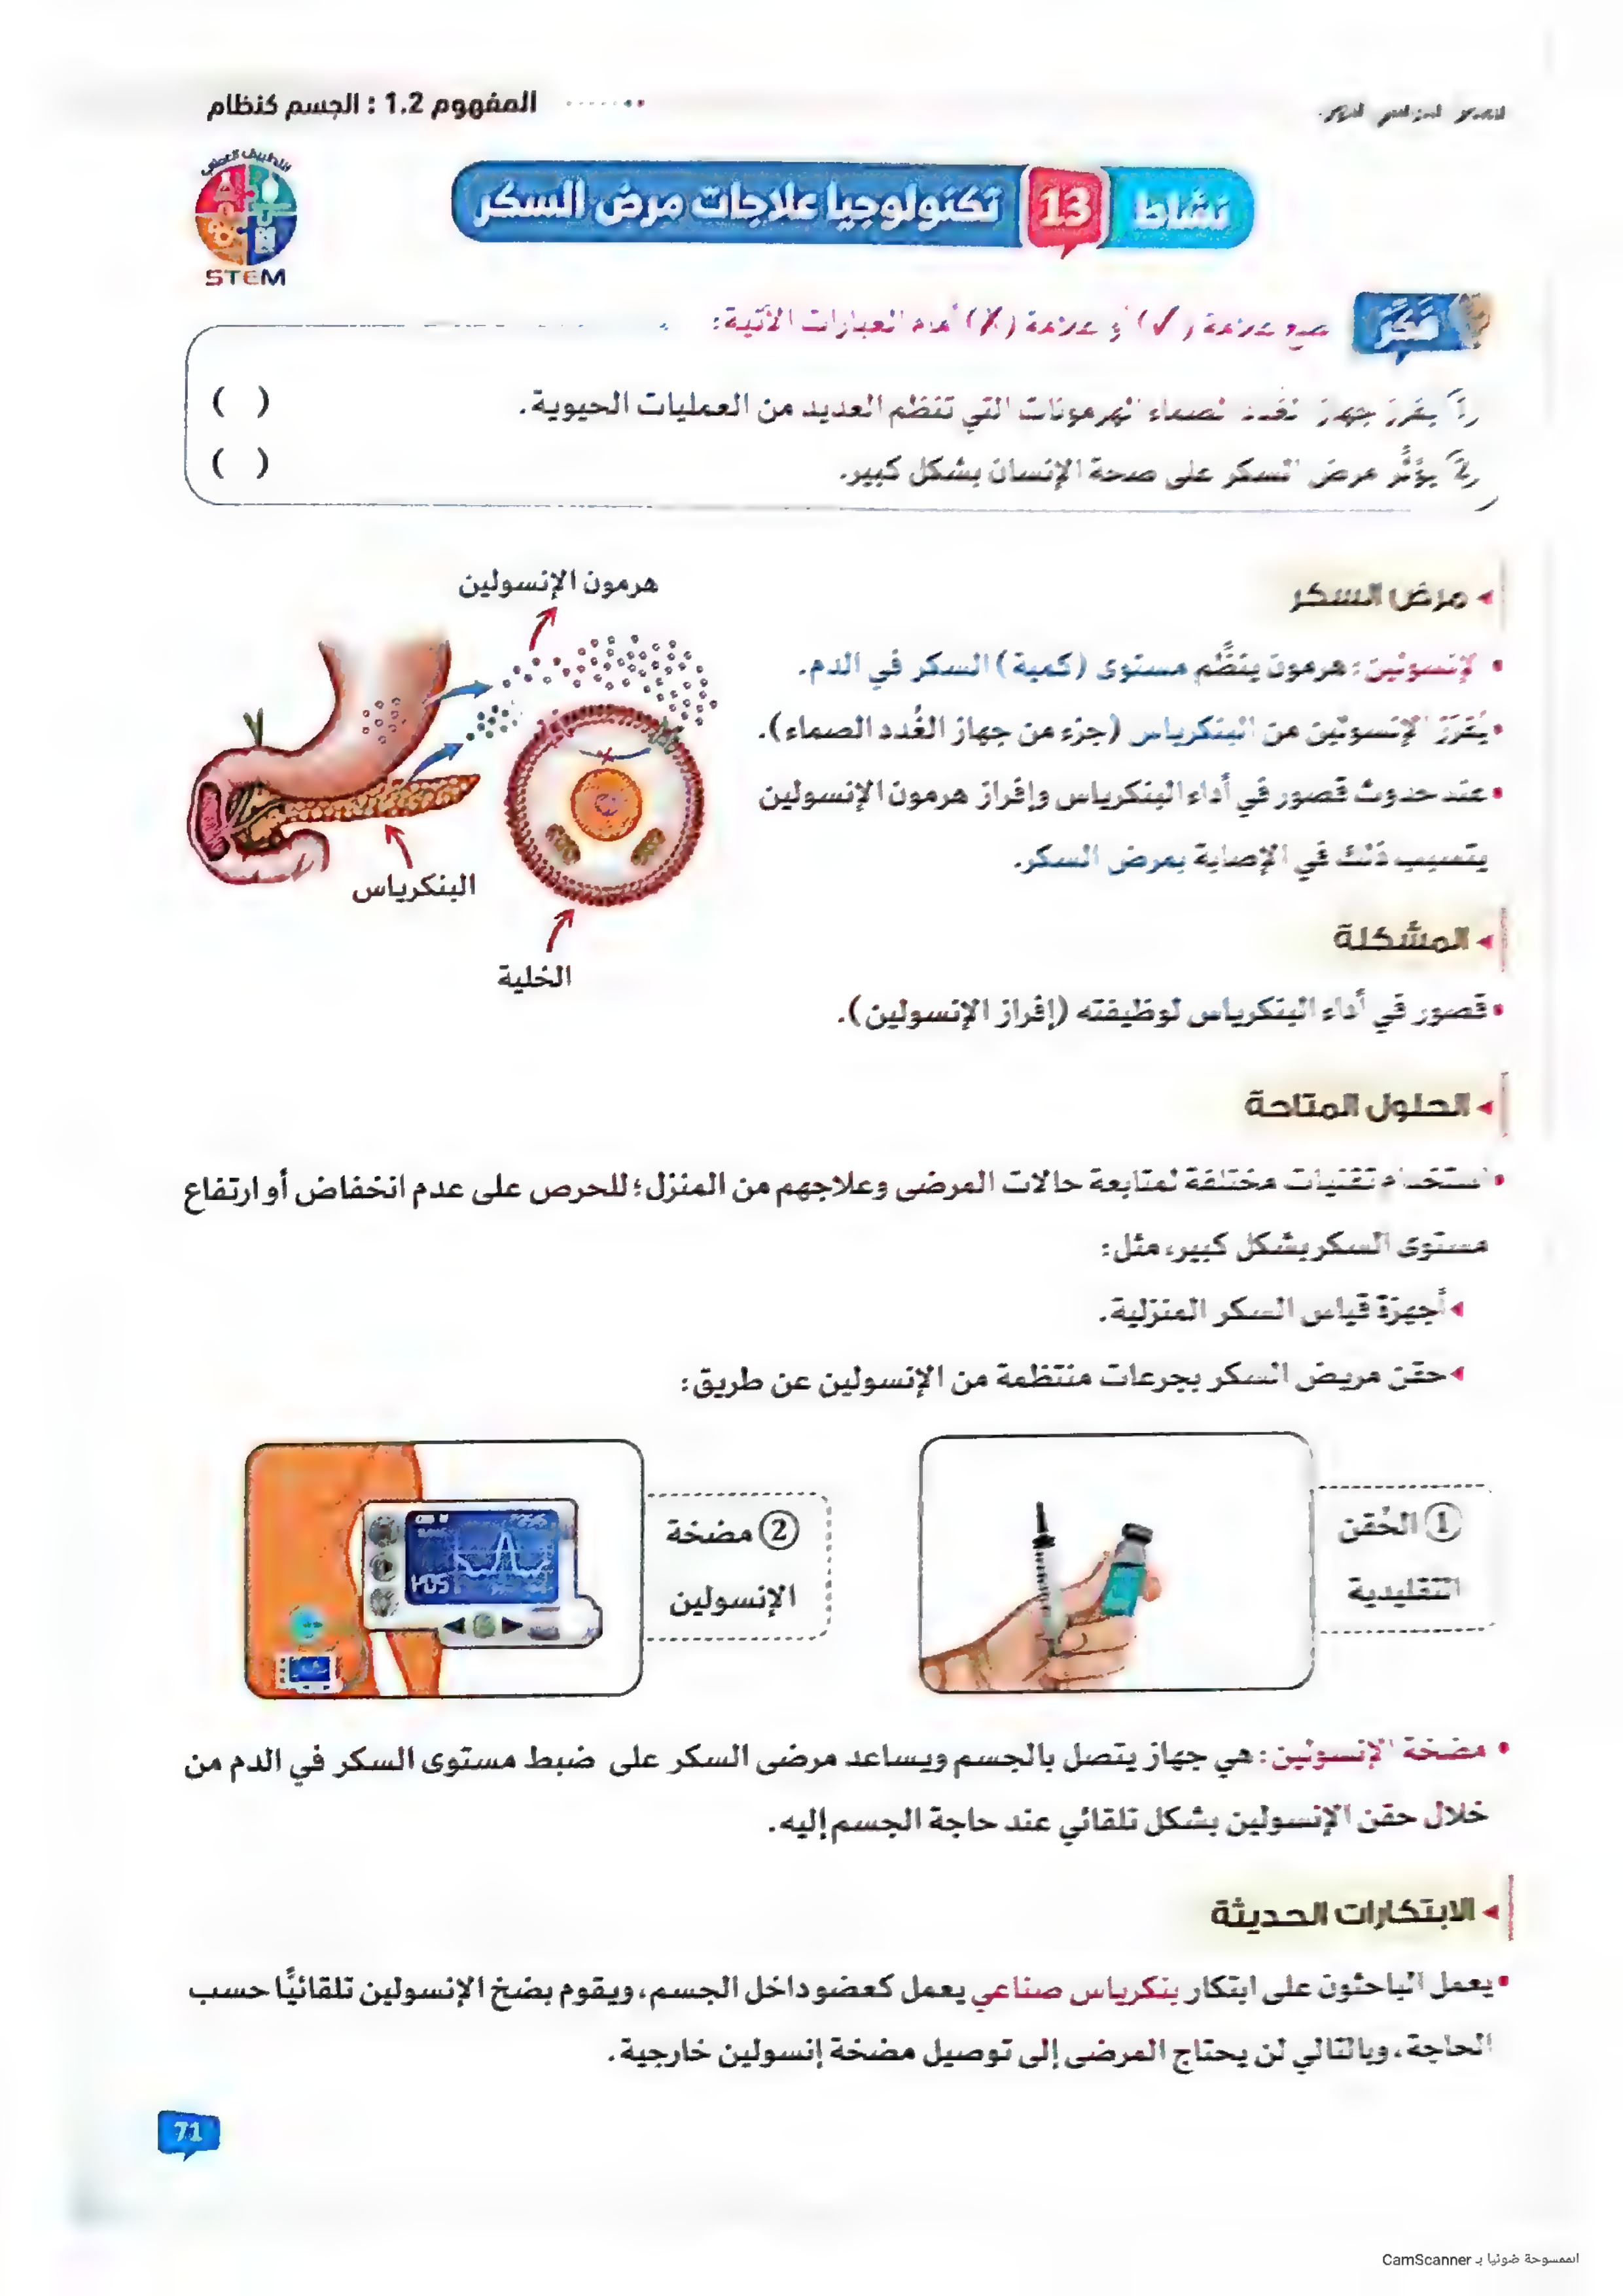 الفصل الدراسي الأول
المفهوم 1.2 : الجسم كنظام
نشاط 13 تكنولوجيا علاجات مرض السكر
التطبيق العملي
STEM
فكر
ضع علامة (✓) أو علامة (✗) أمام العبارات الآتية:
1 يفرز جهاز الغدد الصماء الهرمونات التي تنظم العديد من العمليات الحيوية. ( )
2 يؤثر مرض السكر على صحة الإنسان بشكل كبير. ( )
مرض السكر
• الإنسولين: هرمون ينظِّم مستوى (كمية) السكر في الدم.
• يُفرَز الإنسولين من البنكرياس (جزء من جهاز الغُدد الصماء).
• عند حدوث قصور في أداء البنكرياس وإفراز هرمون الإنسولين
يتسبب ذلك في الإصابة بمرض السكر.
هرمون الإنسولين
البنكرياس
الخلية
المشكلة
• قصور في أداء البنكرياس لوظيفته (إفراز الإنسولين).
الحلول المتاحة
• استخدام تقنيات مختلفة لمتابعة حالات المرضى وعلاجهم من المنزل؛ للحرص على عدم انخفاض أو ارتفاع
مستوى السكر بشكل كبير، مثل:
أجهزة قياس السكر المنزلية.
حقن مريض السكر بجرعات منتظمة من الإنسولين عن طريق:
① الحُقن
التقليدية
② مضخة
الإنسولين
• مضخة الإنسولين: هي جهاز يتصل بالجسم ويساعد مرضى السكر على ضبط مستوى السكر في الدم من
خلال حقن الإنسولين بشكل تلقائي عند حاجة الجسم إليه.
الابتكارات الحديثة
• يعمل الباحثون على ابتكار بنكرياس صناعي يعمل كعضو داخل الجسم، ويقوم بضخ الإنسولين تلقائيًّا حسب
الحاجة، وبالتالي لن يحتاج المرضى إلى توصيل مضخة إنسولين خارجية.
71
الممسوحة ضوئيا بـ CamScanner